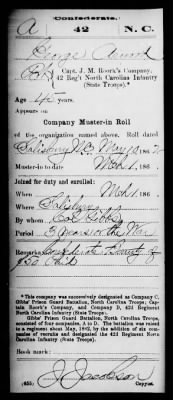 Confederate.
A 42 N. C.
George
Pvt., Capt. J. M. Roark's Company,
42 Reg't North Carolina Infantry
(State Troops).*
Age 45 years.
Appears on
Company Muster-in Roll
of the organization named above. Roll dated
Salisbury N.C. May 10, 1862
Muster-in to date Mch 1, 186
Joined for duty and enrolled:
When Mch 1, 186
Where Salisbury
By whom Gibbs
Period 3 years or the War
Remarks: Bounty of
$50 Paid
*This company was successively designated as Company C,
Gibbs' Prison Guard Battalion, North Carolina Troops; Cap-
tain Roark's Company, and Company D, 42d Regiment
North Carolina Infantry (State Troops).
Gibbs' Prison Guard Battalion, North Carolina Troops,
consisted of four companies, A to D. The battalion was raised
to a regiment about May, 1862, by the addition of six com-
panies of recruits and designated the 42d Regiment North
Carolina Infantry (State Troops).
Book mark:
(655) J. Jacobson
Copyist.